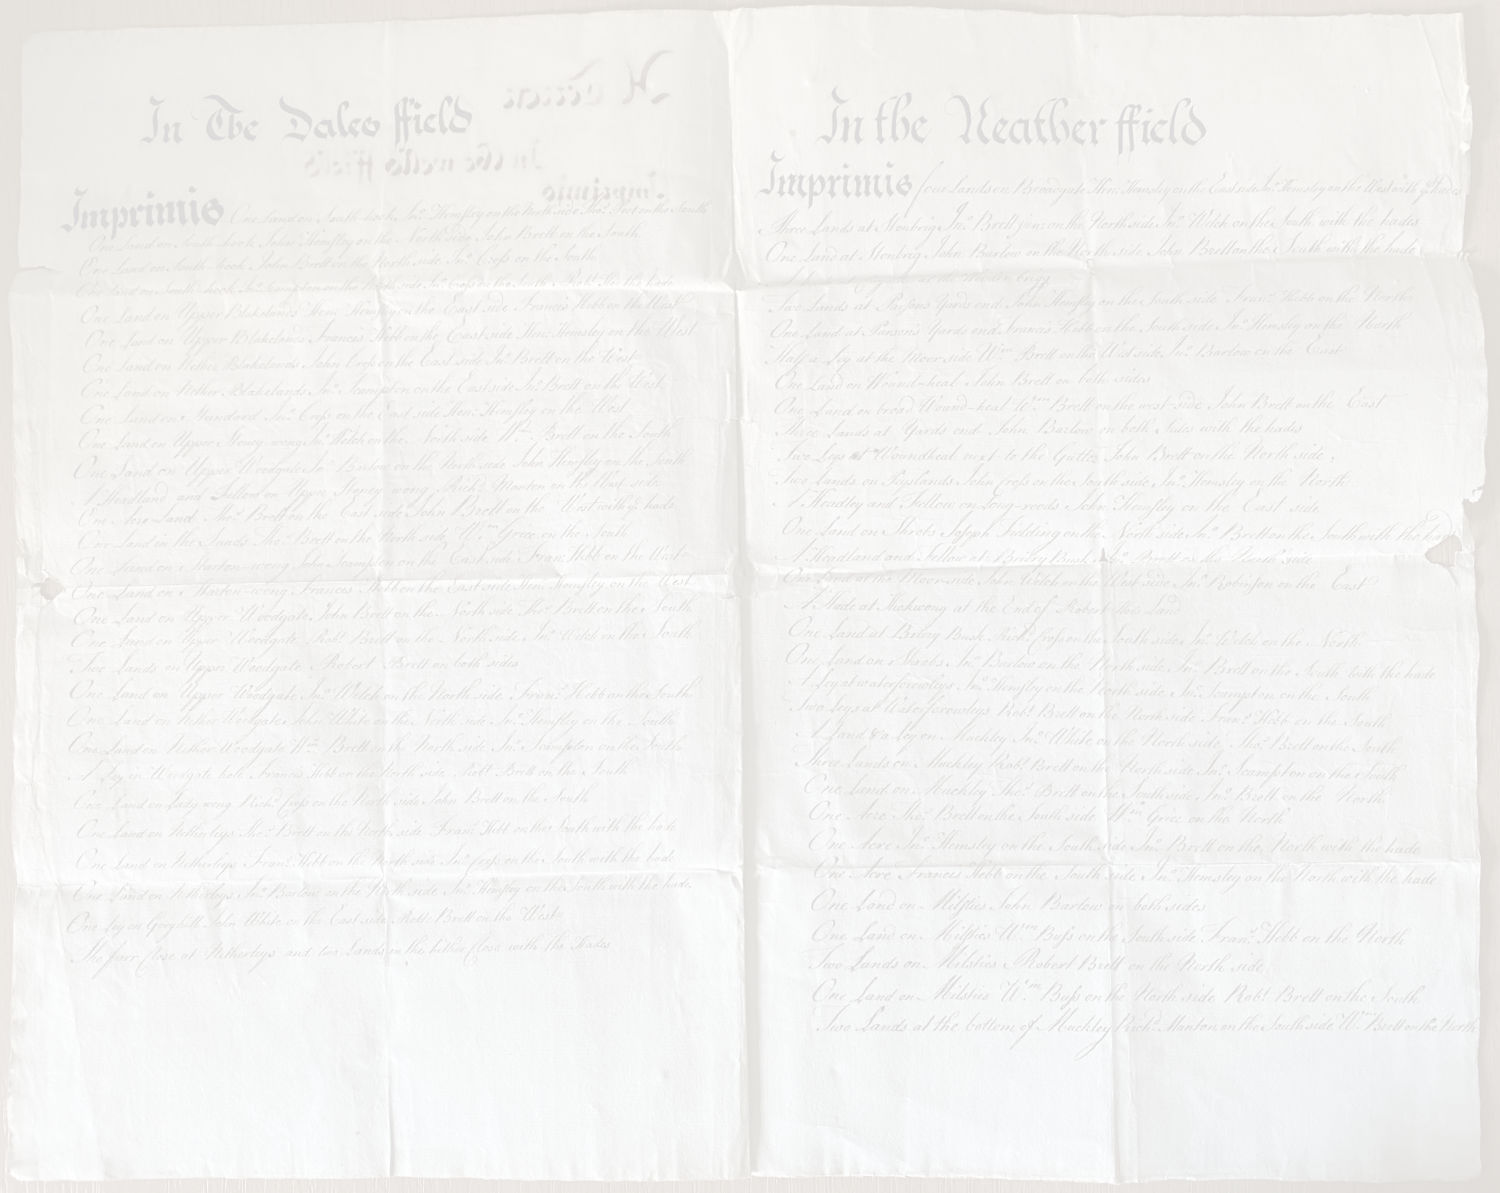 In The Dales ffield
Imprimis One Land on South hook Jno. Hemsley on the North side Thos. on the South
One Land on South hook John Hemsley on the North side John Brett on the South
One Land on South hook John Brett on the North side Jno. Cross on the South
One Land on South hook Jno. Scampton on the side Jno. Cross on the South
One Land on Upper Blakelands Hen: Hemsley on the East side Francis Hebb on the West
One Land on Upper Blakelands Francis Hebb on the East side Hen: Hemsley on the West
One Land on Nether Blakelands John Cross on the East side Jno. Brett on the West
One Land on Nether Blakelands Jno. Scampton on the East side Jno. Brett on the West
One Land on Jno. Cross on the East side Hen: Hemsley on the West
One Land on Upper Honey-wong Jno. Welch on the North side Wm. Brett on the South
One Land on Upper Woodgate Jno. Barlow on the North side John Hemsley on the South
A Headland and Fellow on Upper Honey wong Richd. Manton on the West side
One Acre Land Thos. Brett on the East side John Brett on the West with ye hade
One Land in the Thos. Brett on the North side Wm. Grece on the South
One Land on wong John Scampton on the East side Fran: Hebb on the West
One Land on wong Francis Hebb on the East side Hen: Hemsley on the West
One Land on Upper Woodgate John Brett on the North side Thos. Brett on the South
One Land on Upper Woodgate Robt. Brett on the North side Jno. Welch on the South
Two Lands on Upper Woodgate Robert Brett on both sides
One Land on Upper Woodgate Jno. Welch on the North side Fran: Hebb on the South
One Land on Nether Woodgate John White on the North side Jno. Hemsley on the South
One Land on Nether Woodgate Wm. Brett on the North side Jno. Scampton on the South
A Ley in Woodgate hole Francis Hebb on the North side Robt. Brett on the South
One Land on Lady wong Richd. Cross on the North side John Brett on the South
One Land on Netherleys Thos. Brett on the North side Fran: Hebb on the South with the hade
One Land on Netherleys Fran: Hebb on the North side Jno. Cross on the South with the hade
One Land on Netherleys Jno. Barlow on the North side Jno. Hemsley on the South with the hade
One Ley on John White on the East side Robt. Brett on the West
The farr Close at Netherleys and two Lands in the hither Close with the Hades
In the Neather ffield
Imprimis four Lands on Broadgate Hen: Hemsley on the East side Jno. Hemsley on the West with ye Hades
Three Lands at Stonbrig Jno. Brett junr. on the North side Jno. Welch on the South with the hades
One Land at Stonbrig John Barlow on the North side John Brett on the South with the hade
Two Lands at Parsons Yards end John Hemsley on the South side Fran: Hebb on the North
One Land at Parsons Yards end Francis Hebb on the South side Jno. Hemsley on the North
Half a Ley at the Moor side Wm. Brett on the West side Jno. Barlow on the East
One Land on Wound-heal John Brett on both sides
One Land on broad Wound-heal Wm. Brett on the west-side John Brett on the East
Three Lands at Yards end John Barlow on both sides with the hades
Two Leys at Woundheal next to the Gutter John Brett on the North side
Two Lands on Peyslands John Cross on the South side Jno. Hemsley on the North
A Headley and Fellow on Long-roods John Hemsley on the East side
One Land on Shrobs Joseph Tudding on the North side Jno. Brett on the South with the hade
A Headland and Fellow at Briley Bush Jno. Brett on the North side
One Land at the Moor-side John Welch on the West side Jno. Robinson on the East
A Hade at wong at the End of Robert Land
One Land at Briley Bush Richd. Cross on the South side Jno. Welch on the North
One Land on Shrobs Jno. Barlow on the North side Jno. Brett on the South with the hade
A Ley at waterforowleys Jno. Hemsley on the North side Jno. Scampton on the South
Two Leys at Waterforowleys Robt. Brett on the North side Fran: Hebb on the South
A Land & a Ley on Muckley Jno. White on the North side, Thos. Brett on the South
Three Lands on Muckley Robt. Brett on the North side Jno. Scampton on the South
One Land on Muckley Thos. Brett on the South side Jno. Brett on the North
One Acre Thos. Brett on the South side Wm. Grece on the North
One Acre Jno. Hemsley on the South side Jno. Brett on the North with the hade
One Acre Francis Hebb on the South side Jno. Hemsley on the North with the hade
One Land on Milsties John Barlow on both sides
One Land on Milsties Wm. Buss on the South side Fran: Hebb on the North
Two Lands on Milsties Robert Brett on the North side
One Land on Milsties Wm. Buss on the North side Robt. Brett on the South
Two Lands at the bottom of Muckley Richd. Manton on the South side Wm. Brett on the North